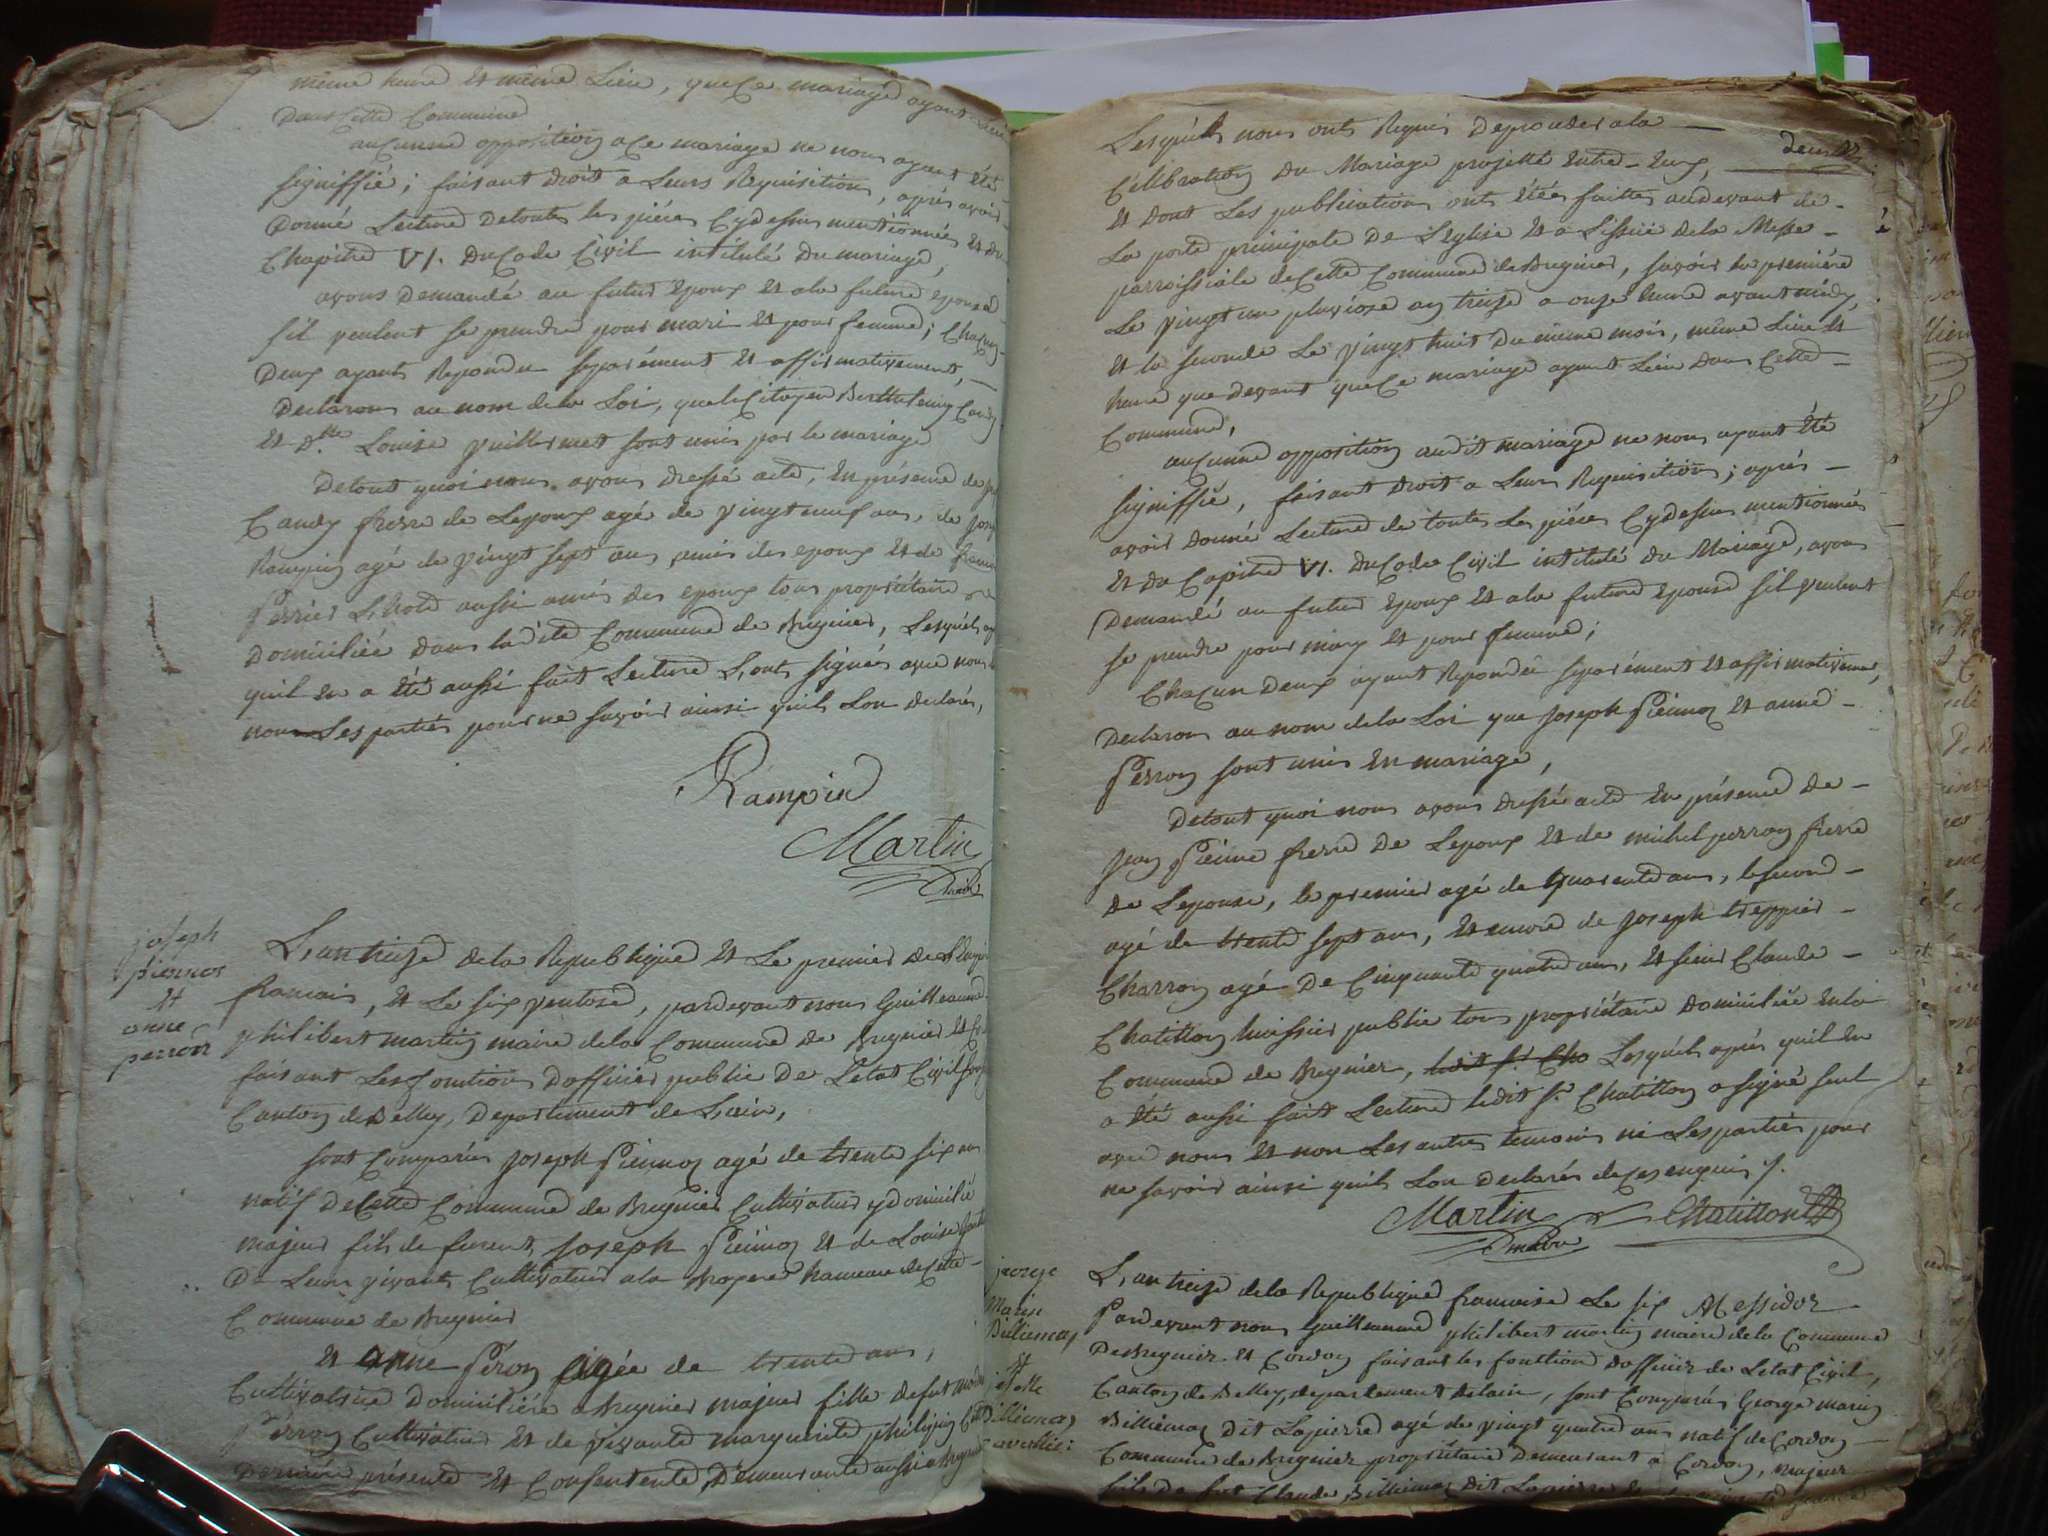 même heure et même Lieu, que Ce mariage ayant Lieu
Dans Cette Commune
aucunne opposition a Ce mariage ne nous ayant été
Signiffié; faisant droit a Leurs Requisition, après avoir
Donné Lecture de toutes les pièces Cydessus mentionnées et du
Chapitre VI. Du Code Civil intitulé Du mariage,
avons Demandé au futur Epoux et a la future epouse
s'il veulent se prendre pour mari et pour femme; Chacun
Deux ayant Repondu separément et affirmativement,
Declarons au nom de la Loi, que le Citoyen Berthelemy Candy
et Dlle Louise Vuillermet sont unis par le mariage
De tout quoi nous avons Dressé acte, En présence de
Candy frere de Lepoux agé de vingt neuf ans, de Joseph
Rampin agé de vingt sept ans amis des epoux et de
Perrier Lhote aussi amis des epoux tous propriétaire
Domiciliée dans la dite Commune de Bregnier, Lesquels
quil en a été aussi fait Lecture L'ont signés avec nous
non Les parties pour ne savoir ainsi quils Lon declarés,
Rampin
Martin
maire
joseph
pierros
et
anne
perron
L'an treize de la Republique et Le premier de L'Empire
francais, et Le six ventose, pardevant nous Guilleaume
philibert martin maire de la Commune de Bregnier et
faisant Les fonctions D'officier public De L'etat Civil
Canton de Belley, Departement de L'ain,
sont Comparus Joseph Pierroz agé de trente six ans
natif De Cette Commune de Bregnier Cultivateur y domicilié
majeur fils de furent Joseph Pierroz et de Louise
De Leur vivant Cultivateur a la hameau de Cette
Commune de Bregnier
et anne Péron agée de trente ans,
Cultivatrice Domiciliére a Bregnier majeur fille de fut
Perron Cultivateur et de vivante marguerite philippin
Dernière présente et Consentente, Demeurante aussi a Bregnier
Lesquels nous onts Requis De proceder a la
Célébration Du Mariage projetté Entre-Eux,
et Dont Les publications onts étées faittes audevant de
La porte principale De L'eglise et a L'issüe de la Messe
parroissiale de Cette Commune de Bregnier, savoir la première
Le vingt un pluviose an treize a onze heure avant midy,
et la seconde Le vingt huit Du même mois, même Lieu et
heure que devant que Ce mariage ayant Lieu Dans Cette
Commune,
aucunne opposition audit mariage ne nous ayant été
signiffié, faisant Droit a Leurs Requisition; après
avoir Donné Lecture de toutes Les pièces Cydessus mentionnées
et du Capitre VI. Du Code Civil intitulé Du Mariage, avons
Demandé au futur Epoux et a la future epouse s'il veulent
se prendre pour mary et pour femme;
Chacun Deux ayant Repondu separément et affirmativement,
Declarons au nom de la Loi que Joseph Pierroz et anne
Perron sont unis en mariage,
De tout quoi nous avons dressé acte en présence De
frere De Lepoux et de michel perron frere
De Lepouse, le premier agé de quarente ans, le second
agé de trente sept ans, et encore de Joseph treppier
Charron agé De Cinquante quatre ans, et sieur Claude
Chatillon huissier public tous propriétaire Domiciliée en la
Commune de Bregnier, ledit Sr Cha Lesquels après quil En
a été aussi fait Lecture ledit Sr Chatillon a signé seul
avec nous et non Les autres temoins ni Les parties pour
ne savoir ainsi quils Lon Declarés de ces enquis /.
Martin
maire
Chatillon
george
Marin
Billiemaz
et
Billiemaz
L'an treize de la Republique francaise Le six Messidor
Pardevant nous Guilleaume philibert martin maire de la Commune
De Bregnier et Cordon faisant les fonction D'officier de L'etat Civil,
Canton de Belley, departement de L'ain, sont Comparus George marin
Billiemaz Dit Lapierre agé de vingt quatre ans natif de Cordon
Commune de Bregnier propriétaire Demeurant a Cordon, majeur
fils De fut Claude Billiemaz Dit Lapierre